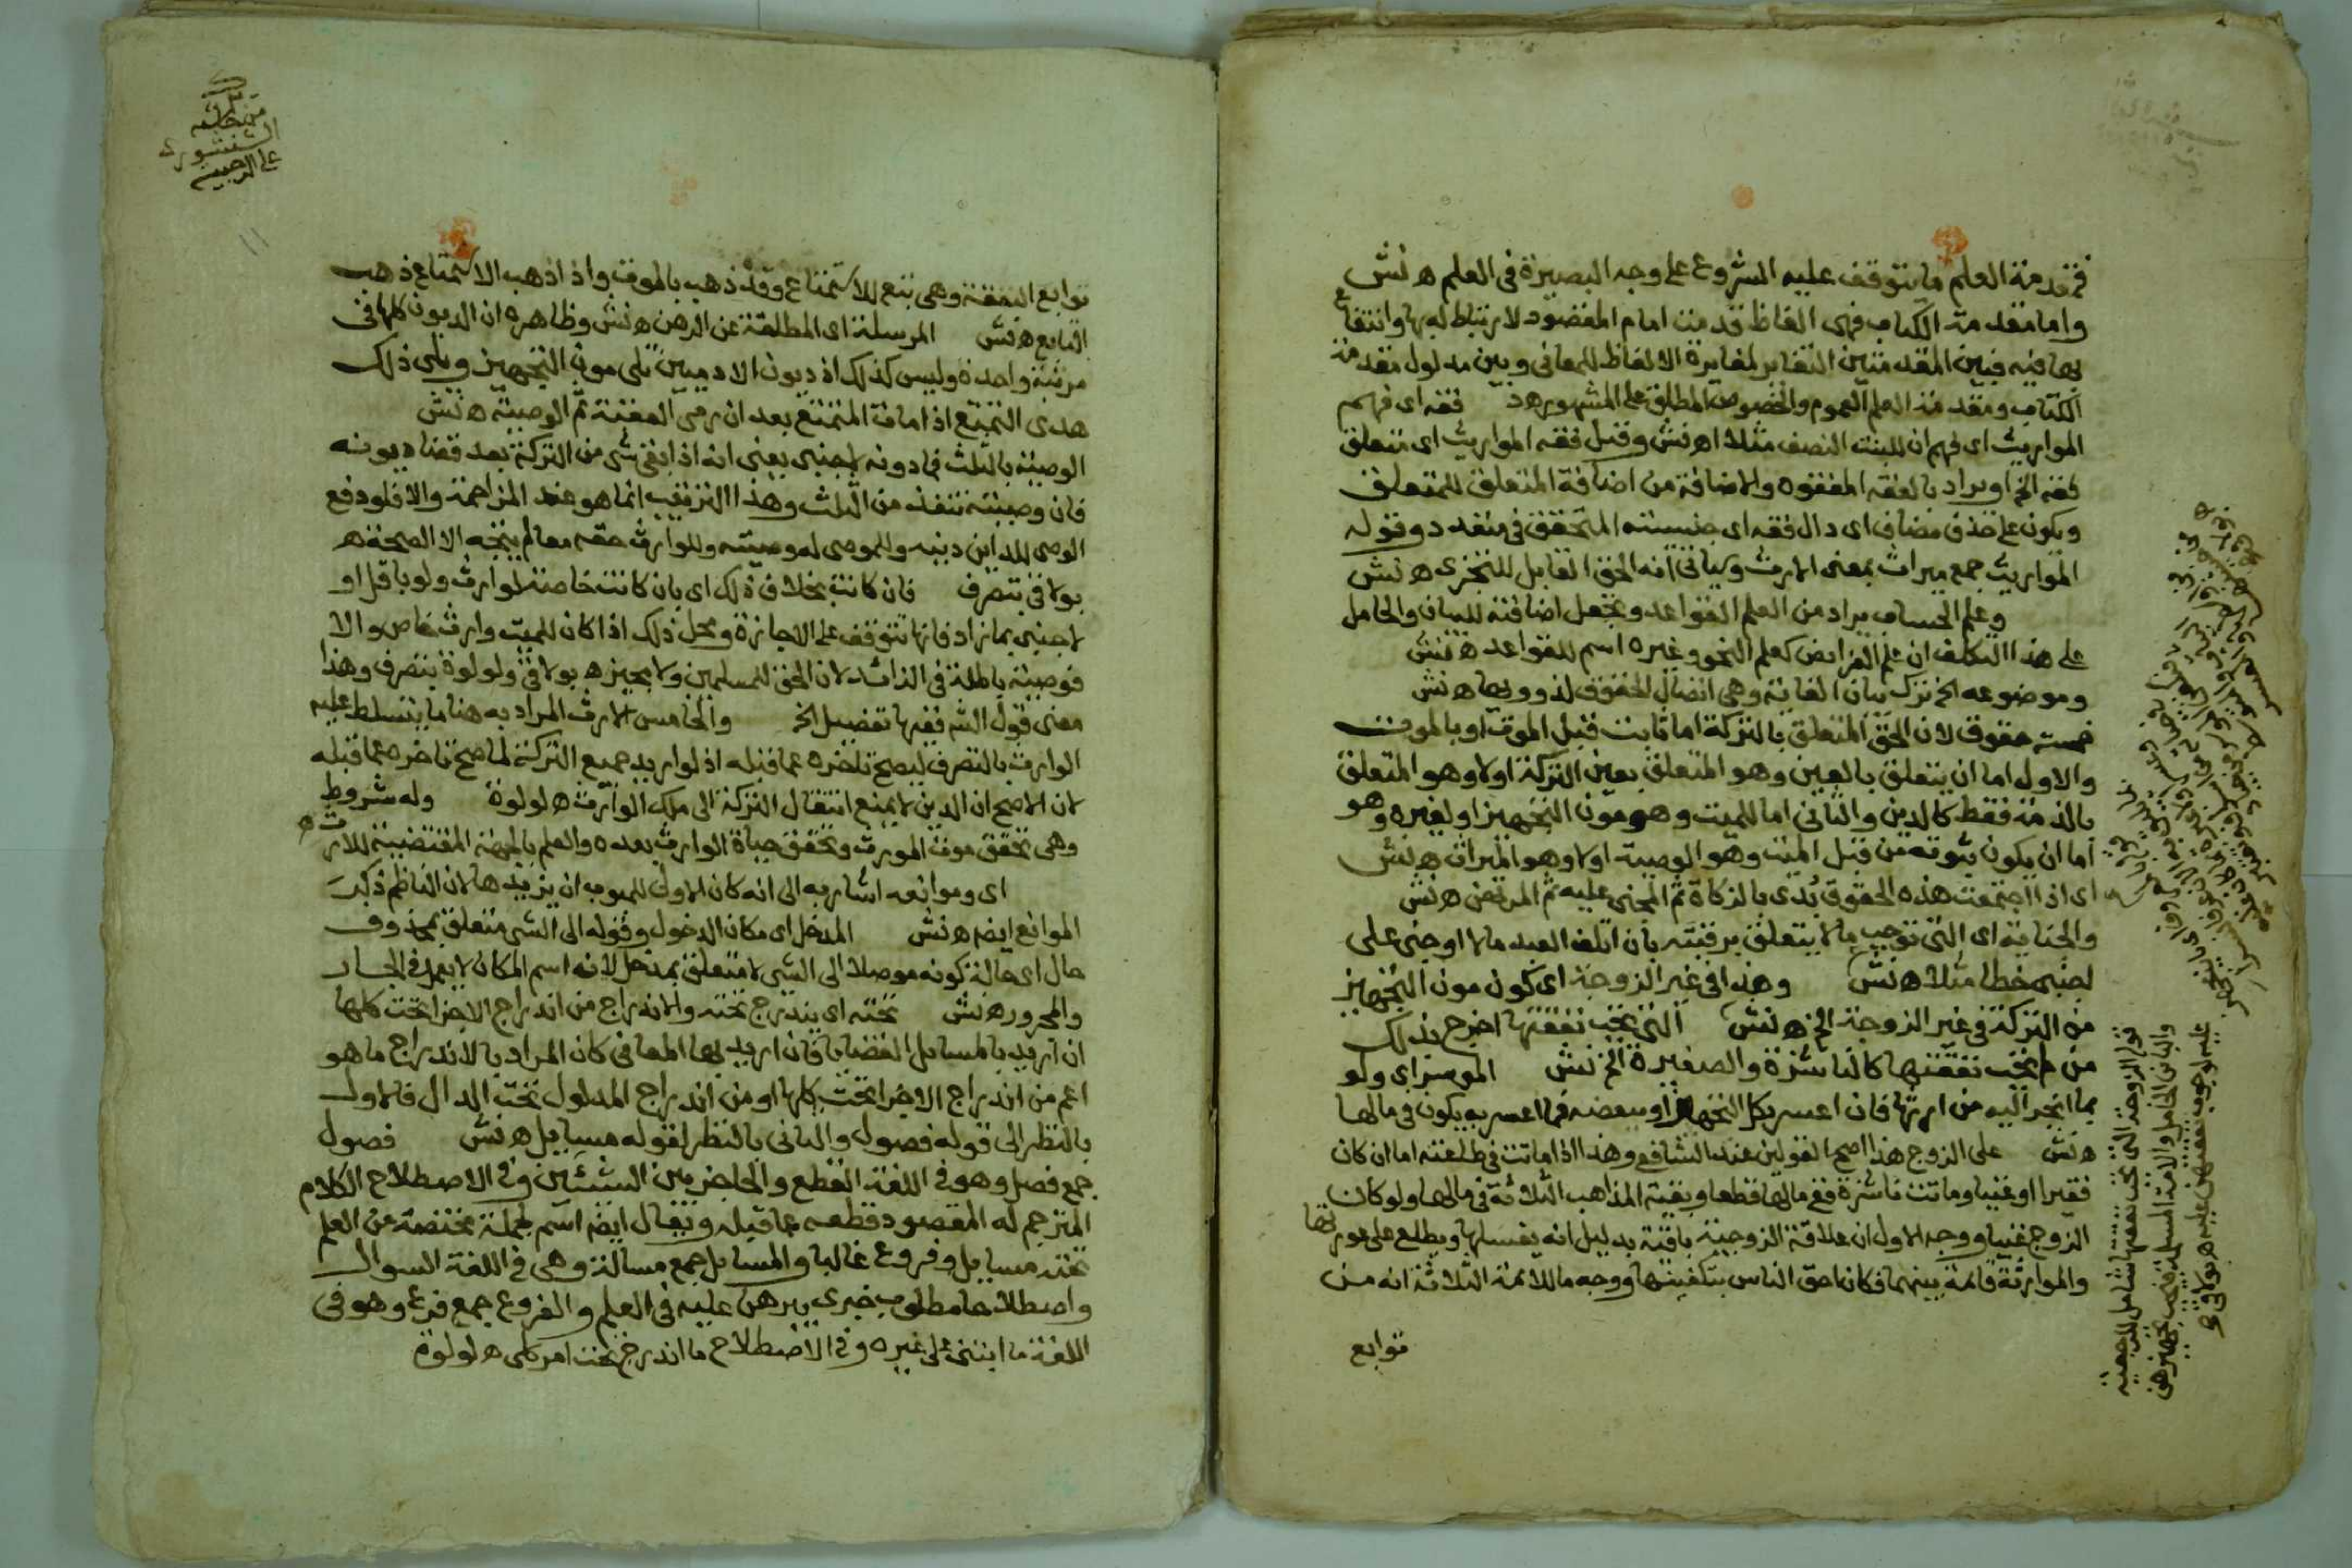 فمقدمة العلم ما يتوقف عليه الشروع على وجه البصيرة في العلم ه نش
واما مقدمة الكتاب فهي الفاظ قدمت امام المقصود لارتباط له بها وانتفاع
بها فيه فبين المقدمتين التغاير لمغايرة الالفاظ للمعاني وبين مدلول مقدمة
الكتاب ومقدمة العلم العموم والخصوص المطلق على المشهور ه د فقه اي فهم
المواريث اي فهم ان للبنت النصف مثلا اه نش وقيل فقه المواريث اي متعلق
فقه الخ او يراد بالفقه المفقوه والاضافة من اضافة المتعلق للمتعلق
ويكون على حذف مضاف اي دال فقه اي جنسيته المتحقق في متعدد وقوله
المواريث جمع ميراث بمعنى الارث وسياتي انه الحق القابل للتجزي ه نش
وعلم الحساب يراد من العلم القواعد وتجعل اضافته للبيان والحامل
على هذا التكلف ان علم الفرايض كعلم النحو وغيره اسم للقواعد ه نش
وموضوعه الخ ترك بيان الغاية وهي ايصال الحقوق لذوويها ه نش
خمسة حقوق لان الحق المتعلق بالتركة اما ثابت قبل الموت او بالموت
والاول اما ان يتعلق بالعين وهو المتعلق بعين التركة اولا وهو المتعلق
بالذمة فقط كالدين والثاني اما للميت وهو مون التجهيز او لغيره وهو
اما ان يكون ثبوته من قبل الميت وهو الوصية اولا وهو الميراث ه نش
اي اذا اجتمعت هذه الحقوق بُدي بالزكاة ثم المجني عليه ثم المرتهن ه نش
والجناية اي التي توجب مالا يتعلق برقبته بان اتلف العبد مالا او جنى على
اجنبي خطا مثلا ه نش وهذا في غير الزوجة اي كون مون التجهيز
من التركة في غير الزوجة الخ ه نش التي تجب نفقتها اخرج بذلك
من لم تجب نفقتها كالناشزة والصغيرة الخ نش الموسر اي ولو
بما انجر اليه من ارثها فان اعسر بكل التجهيز او ببعضه فما اعسر به يكون في مالها
ه نش على الزوج هذا اصح القولين عند الشافعي وهذا اذا ماتت في طاعته اما ان كان
فقيرا او غنيا وماتت ناشزة ففي مالها قطعا وبقية المذاهب الثلاثة في مالها ولو كان
الزوج غنيا ووجه الاول ان علاقة الزوجية باقية بدليل انه يغسلها ويطلع على عورتها
والموارثة قائمة بينهما فكان احق الناس بتكفينها ووجه ما للائمة الثلاثة انه من
توابع
قوله الزوجة التي تجب نفقتها شامل للرجعية
والباين الحامل والامة المسلمة فيجب تجهيزهن
عليه لوجوب نفقتهن عليه ه بولاقي
من حاشية
الشنشوري
على الرحبية
١١
توابع النفقة وهي تبع للاستمتاع وقد ذهب بالموت واذا ذهب الاستمتاع ذهب
التابع ه نش المرسلة اي المطلقة عن الرهن ه نش وظاهره ان الديون كلها في
مرتبة واحدة وليس كذلك اذ ديون الادميين تلي مون التجهيز ويلي ذلك
هدى التمتع اذا مات المتمتع بعد ان رمى العقبة ثم الوصية ه نش
الوصية بالثلث فما دونه لاجنبي يعني انه اذا بقي شي من التركة بعد قضا ديونه
فان وصيته تنفذ من الثلث وهذا الترتيب انما هو عند المزاحمة والا فلو دفع
الوصي للمداين دينه وللموصى له وصيته وللوارث حقه معا لم يتجه الا الصحة ه
بولاقي بتصرف فان كانت بخلاف ذلك اي بان كانت خاصة لوارث ولو باقل او
لاجنبي بما زاد فانها تتوقف على الاجازة ومحل ذلك اذا كان للميت وارث خاص والا
فوصيته باطلة في الزائد لان الحق للمسلمين ولا مجيز ه بولاقي ولولوة بتصرف وهذا
معنى قول الش ففيها تفصيل الخ والخامس الارث المراد به هنا ما يتسلط عليه
الوارث بالتصرف ليصح تاخره عما قبله اذ لو اريد جميع التركة لما صح تاخره عما قبله
لان الاصح ان الدين لا يمنع انتقال التركة الى ملك الوارث ه لولوة وله شروط
وهي تحقق موت المورث وتحقق حياة الوارث بعده والعلم بالجهة المقتضية للارث ه
اي وموانعه اشار به الى انه كان الاولى للمبوب ان يزيدها لان الناظم ذكر
الموانع ايض ه نش المدخل اي مكان الدخول وقوله الى الشي متعلق بمحذوف
حال اي حالة كونه موصلا الى الشي لا متعلق بمدخل لانه اسم المكان لا يعمل في الجار
والمجرور ه نش تحته اي يندرج تحته والاندراج من اندراج الاجزا تحت كلها
ان اريد بالمسايل القضايا فان اريد بها المعاني كان المراد بالاندراج ما هو
اعم من اندراج الاجزا تحت كلها او من اندراج المدلول تحت الدال فالاول
بالنظر الى قوله فصول والثاني بالنظر لقوله مسايل ه نش فصول
جمع فصل وهو في اللغة القطع والحاجز بين الشيئين وفي الاصطلاح الكلام
المترجم له المقصود قطعه عما قبله ويقال ايض اسم لجملة مختصة من العلم
تحته مسايل وفروع غالبا والمسايل جمع مسالة وهي في اللغة السوال
واصطلاحا مطلوب خبري يبرهن عليه في العلم والفروع جمع فرع وهو في
اللغة ما ابتنى على غيره وفي الاصطلاح ما اندرج تحت امر كلي ه لولوة